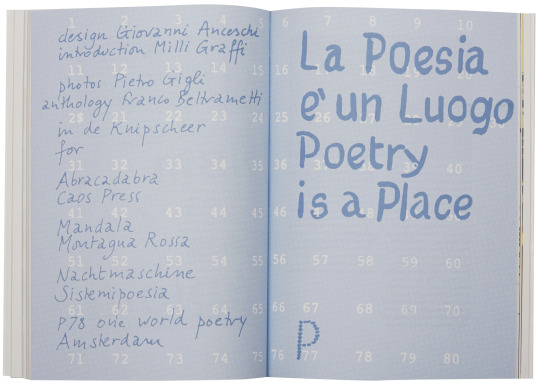 design Giovanni Anceschi
introduction Milli Graffi
photos Pietro Gigli
anthology Franco Beltrametti
in de Knipscheer
for
Abracadabra
Caos Press
Mandala
Montagna Rossa
Nachtmaschine
Sistemipoesia
P78 one world poetry
Amsterdam
La Poesia
e' un Luogo
Poetry
is a Place
P
1 2 3 4 5 6 7 8 9 10
11 12 13 14 15 16 17 18 19 20
21 22 23 24 25 26 27 28 29 30
31 32 33 34 35 36 37 38 39 40
41 42 43 44 45 46 47 48 49 50
51 52 53 54 55 56 57 58 59 60
61 62 63 64 65 66 67 68 69 70
71 72 73 74 75 76 77 78 79 80